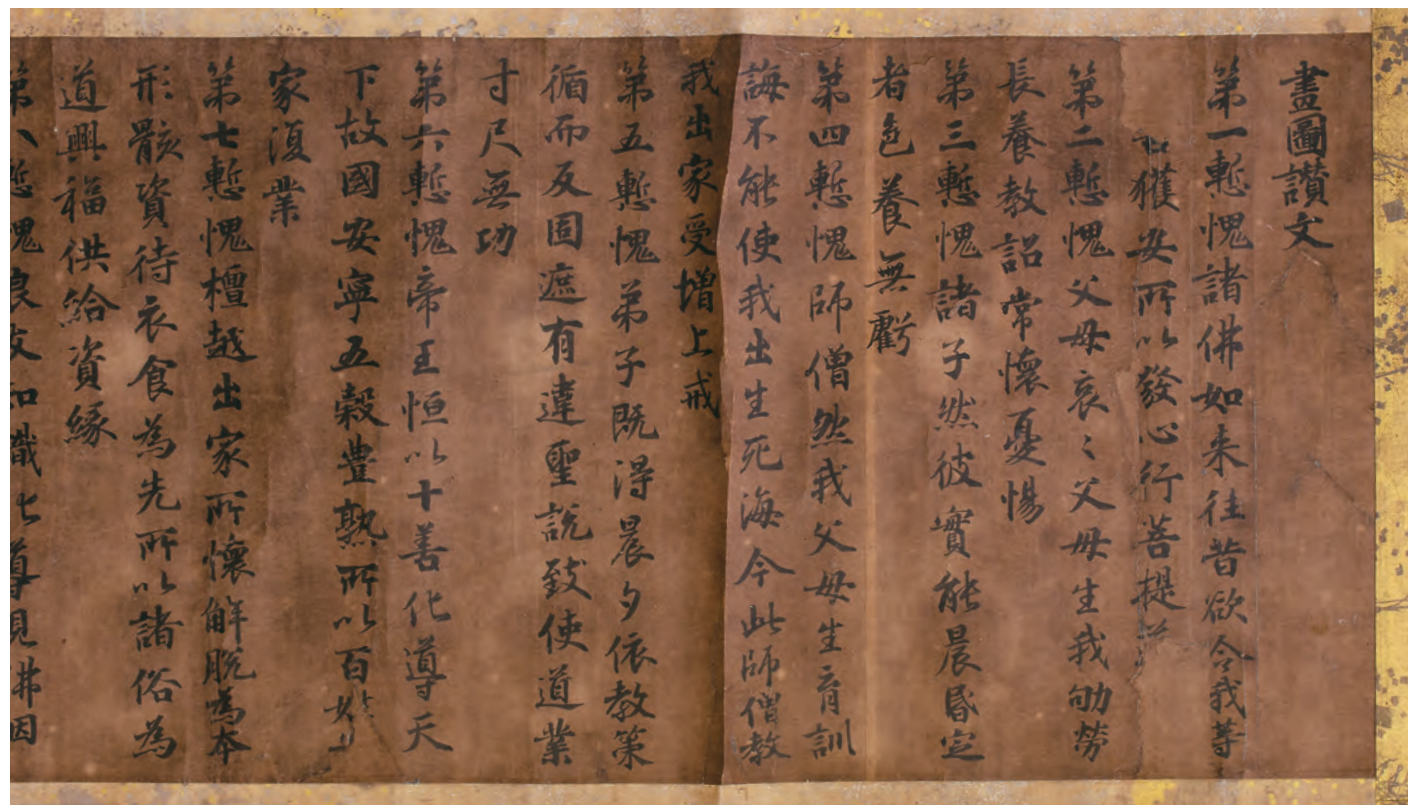 畫圖讚文
第一慙愧諸佛如来往昔欲令我等
獲安所以發心行菩提
第二慙愧父母哀〻父母生我劬勞
長養教詔常懷憂惕
第三慙愧諸子然彼實能晨昏定
者色養無虧
第四慙愧師僧然我父母生育訓
誨不能使我出生死海今此師僧教
我出家受增上戒
第五慙愧弟子既得晨夕依教策
循而反固遮有違聖說致使道業
寸尺無功
第六慙愧帝王恒以十善化導天
下故國安寧五穀豊熟所以百
家復業
第七慙愧檀越出家所懷解脫為本
形骸資待衣食為先所以諸俗為
道興福供給資緣
第八慙愧良友知識七導見佛因